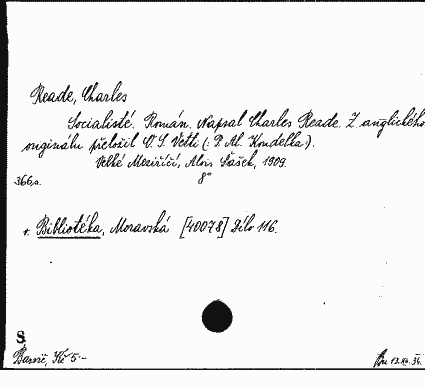 Reade, Charles
Socialisté. Román. Napsal Charles Reade. Z anglického
originálu přeložil O. S. Vetti (: P. Al. Koudelka).
Velké Meziříčí, Alois Šašek, 1909.
366 s. 8°
v. Bibliotéka, Moravská [40078] Dílo 116.
S.
Kč 5.-